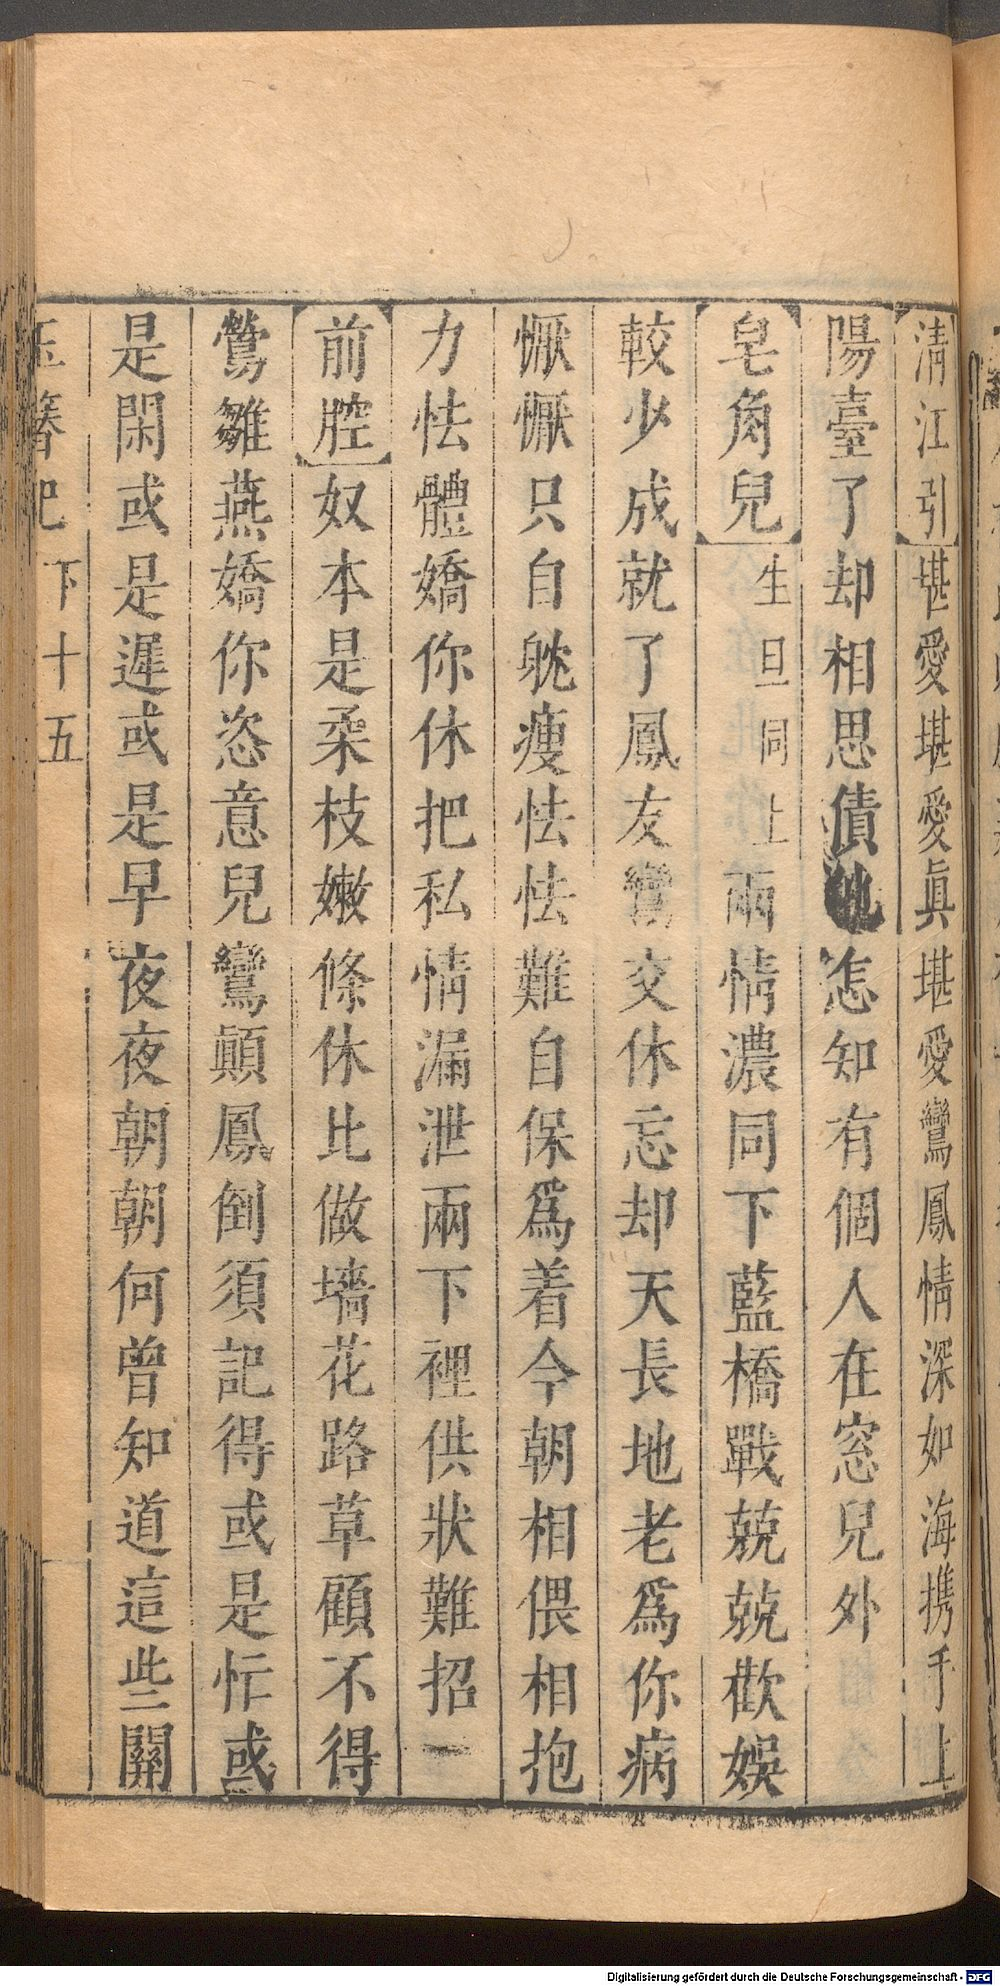 清江引堪愛堪愛眞堪愛鸞鳳情深如海攜手上
陽臺了却相思債他怎知有個人在窓兒外
皂角兒生旦同上兩情濃同下藍橋戰兢兢歡娛
較少成就了鳳友鸞交休忘却天長地老爲你病
懨懨只自躭瘦怯怯難自保爲着今朝相偎相抱
力怯體嬌你休把私情漏泄兩下裡供狀難招一
前腔奴本是柔枝嫩條休比做墻花路草顧不得
鶯雛燕嬌你恣意兒鸞顛鳳倒須記得或是忙或
是閑或是遲或是早夜夜朝朝何曾知道這些關
玉簪記下十五
Digitalisierung gefördert durch die Deutsche Forschungsgemeinschaft - DFG